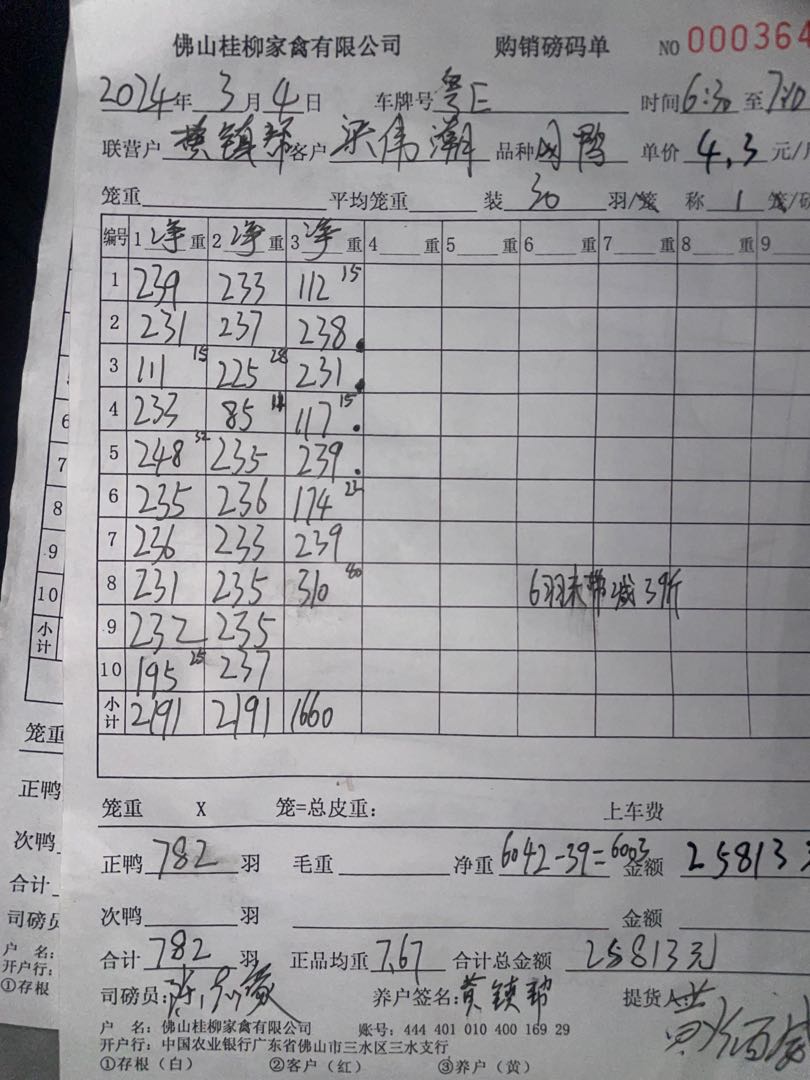 佛山桂柳家禽有限公司 购销磅码单 NO 000364
2024年 3月 4日 车牌号 粤E 时间6:30至7:10
联营户 黄镇帮 客户 梁伟潮 品种 肉鸭 单价 4.3 元/斤
笼重 平均笼重 装 30 羽/笼 称 1 笼/磅
编号 1 净 重 2 净 重 3 净 重 4 重 5 重 6 重 7 重 8 重 9
1 239 233 112 15
2 231 237 238
3 111 15 225 28 231
4 233 85 11 117 15
5 248 32 235 239
6 235 236 174 22
7 236 233 239
8 231 235 310 40 6羽未带减39斤
9 232 235
10 195 25 237
小计 2191 2191 1660
笼重 X 笼=总皮重: 上车费
正鸭 782 羽 毛重 净重 6042-39=6003 金额 25813
次鸭 羽 金额
合计 782 羽 正品均重 7.67 合计总金额 25813元
司磅员: 养户签名: 黄镇帮 提货人
户 名: 佛山桂柳家禽有限公司 账号: 444 401 010 400 169 29
开户行: 中国农业银行广东省佛山市三水区三水支行
①存根(白) ②客户(红) ③养户(黄)
6
7
8
9
10
小计
笼重
正鸭
次鸭
合计
司磅员
户 名:
开户行:
①存根